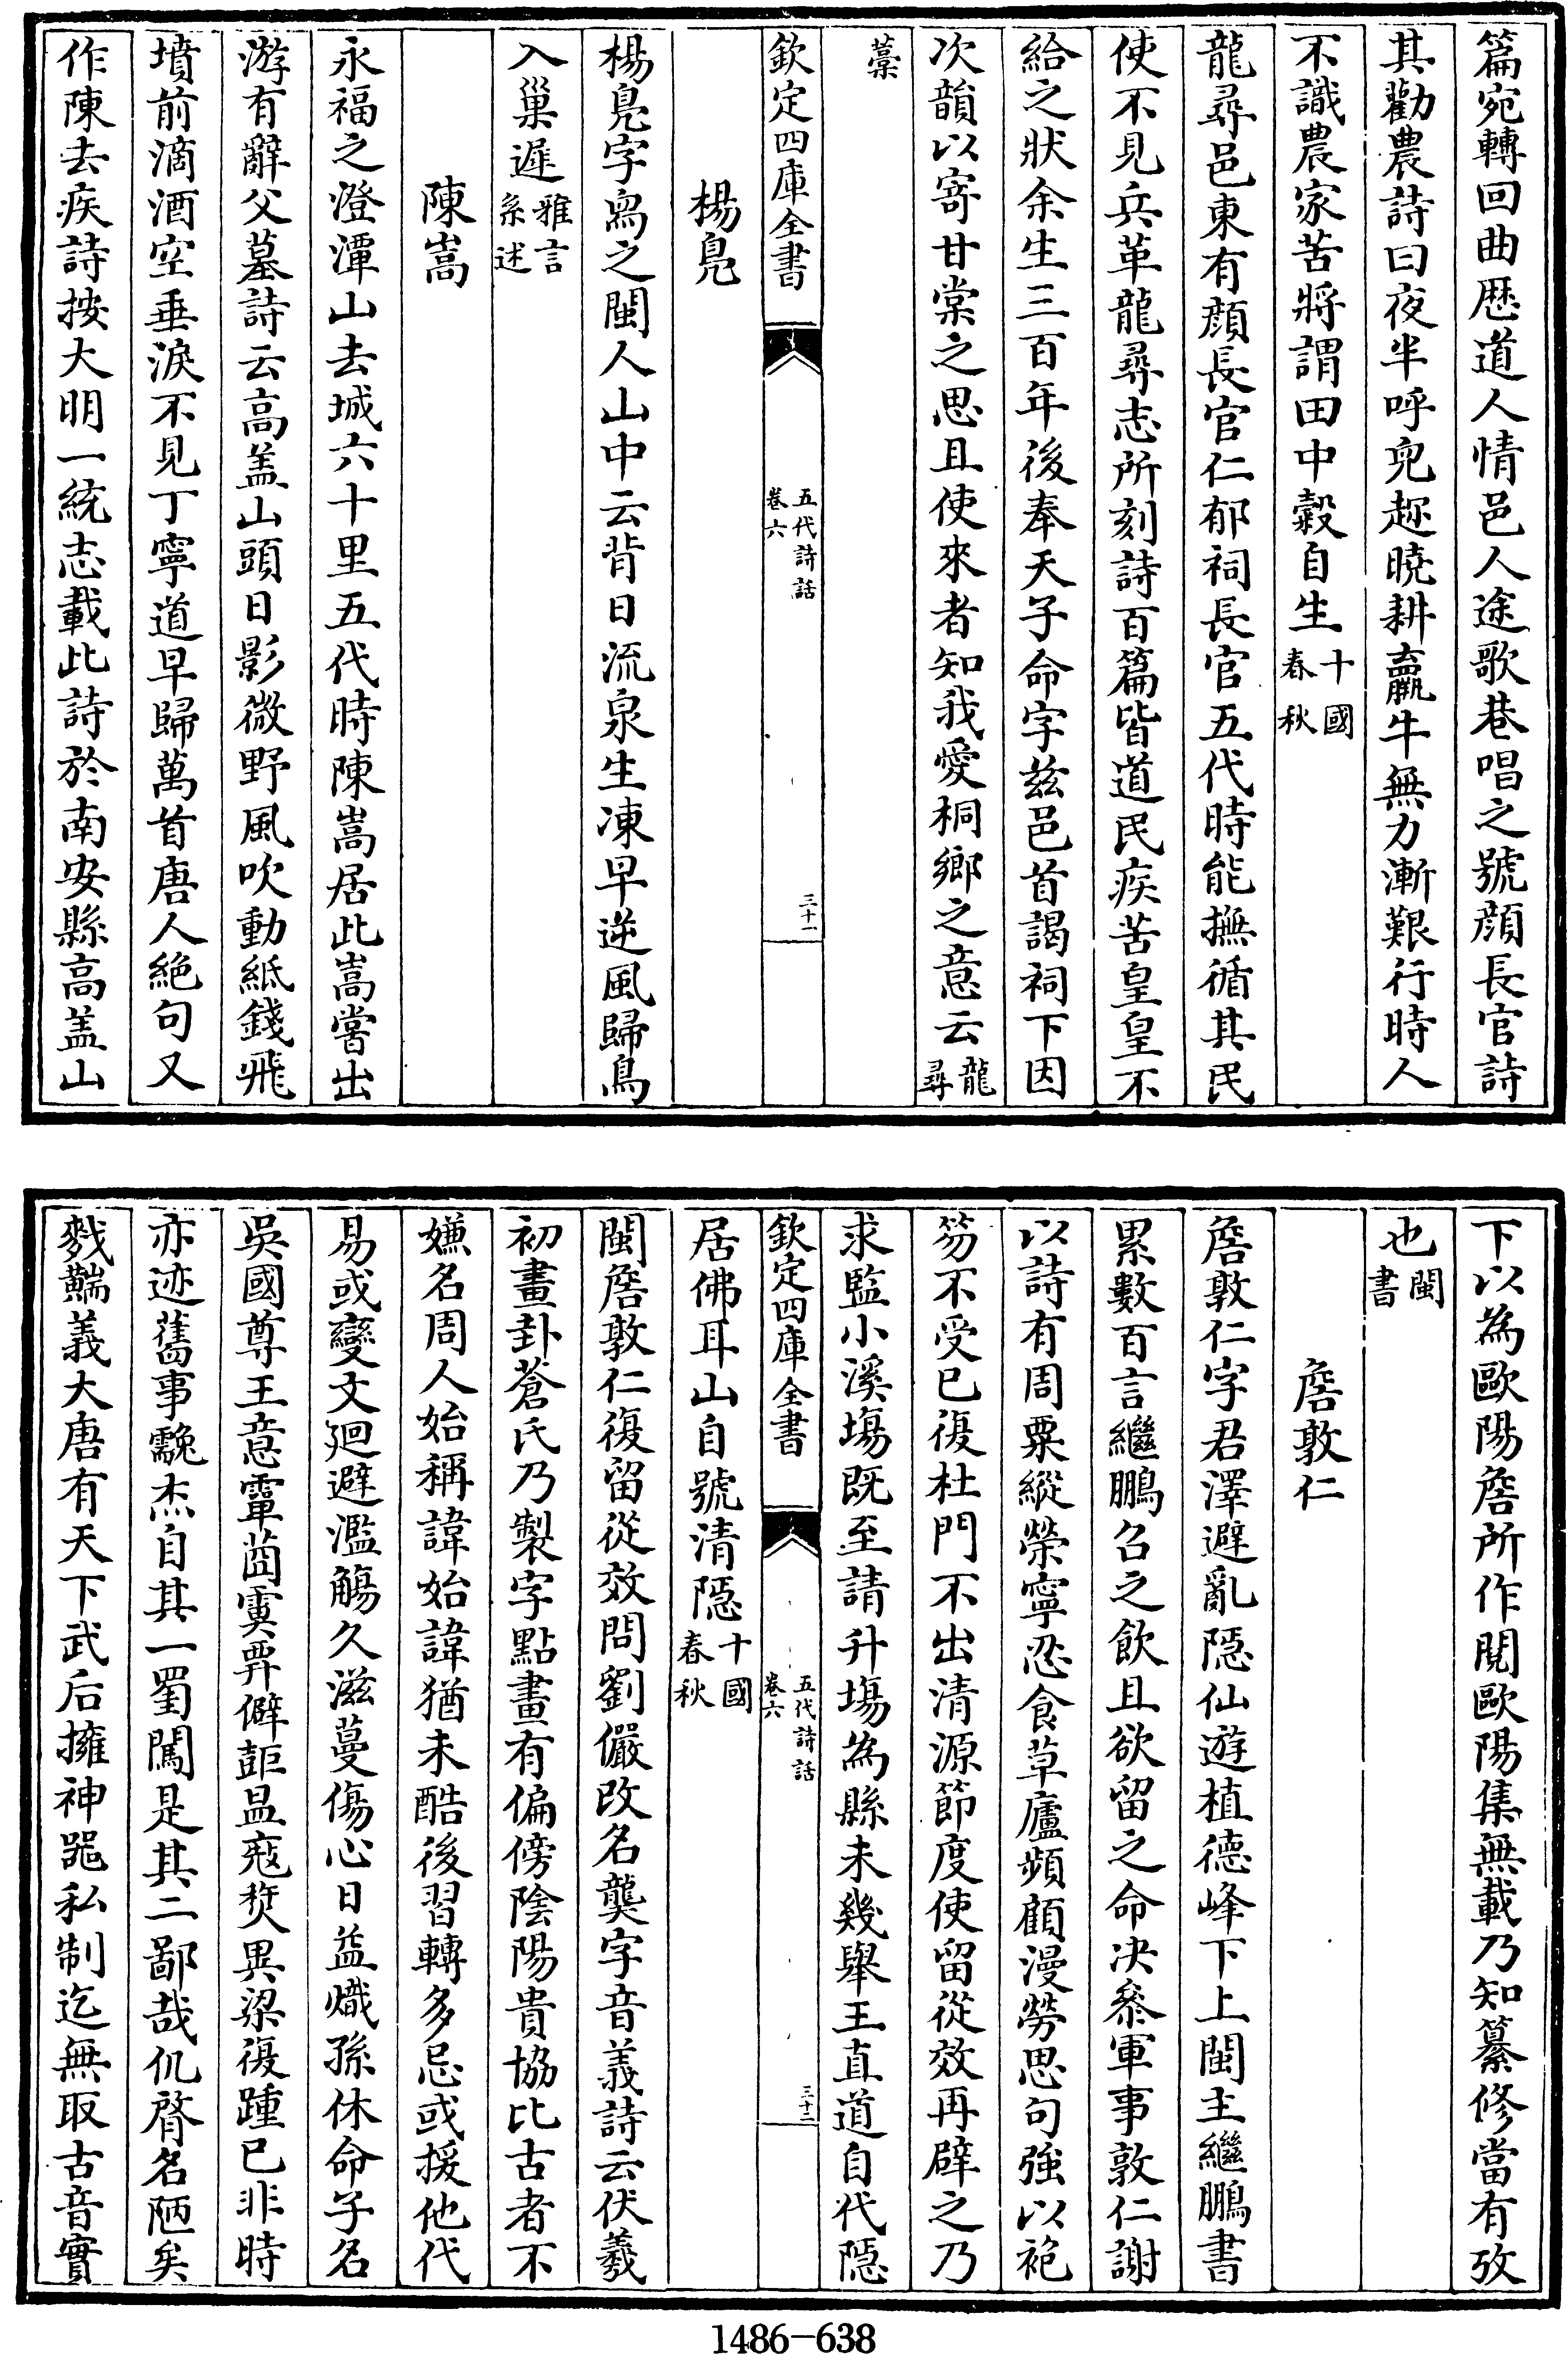 篇宛轉回曲歴道人情邑人途歌巷唱之號顔長官詩
其勸農詩曰夜半呼兒趂曉耕羸牛無力漸艱行時人
不識農家苦將謂田中糓自生十國春秋
龍尋邑東有顔長官仁郁祠長官五代時能撫循其民
使不見兵革龍尋志所刻詩百篇皆道民疾苦皇皇不
給之狀余生三百年後奉天子命字兹邑首謁祠下因
次韻以寄甘棠之思且使來者知我愛桐鄉之意云龍尋
藁
欽定四庫全書
五代詩話
卷六
三十一
楊鳧
楊鳧字舄之閩人山中云背日流泉生凍早逆風歸鳥
入巢遲雅言系述
陳嵩
永福之澄潭山去城六十里五代時陳嵩居此嵩嘗出
游有辭父墓詩云高盖山頭日影微野風吹動紙錢飛
墳前滴酒空垂淚不見丁寧道早歸萬首唐人絶句又
作陳去疾詩按大明一統志載此詩於南安縣高盖山
下以為歐陽詹所作閱歐陽集無載乃知纂修當有攷
也閩書
詹敦仁
詹敦仁字君澤避亂隱仙遊植德峰下上閩主繼鵬書
累數百言繼鵬召之飲且欲留之命决參軍事敦仁謝
以詩有周粟縱榮寧忍食草廬頻顧漫勞思句強以袍
笏不受已復杜門不出清源節度使留從效再辟之乃
求監小溪塲既至請升塲為縣未幾舉王直道自代隱
欽定四庫全書
五代詩話
卷六
三十二
居佛耳山自號清隱十國春秋
閩詹敦仁復留從效問劉儼改名龑字音義詩云伏羲
初畫卦蒼氏乃製字點畫有偏傍陰陽貴協比古者不
嫌名周人始稱諱始諱猶未酷後習轉多忌或援他代
易或變文廻避濫觴久滋蔓傷心日益熾孫休命子名
吳國尊王意𩅦茵𩃙莽僻䶳昷寇㷼異梁復踵已非時
亦迹舊事𩇕杰自其一蜀闖是其二鄙哉仉䏿名陋矣
㪟䵎義大唐有天下武后擁神噐私制迄無取古音實
1486-638